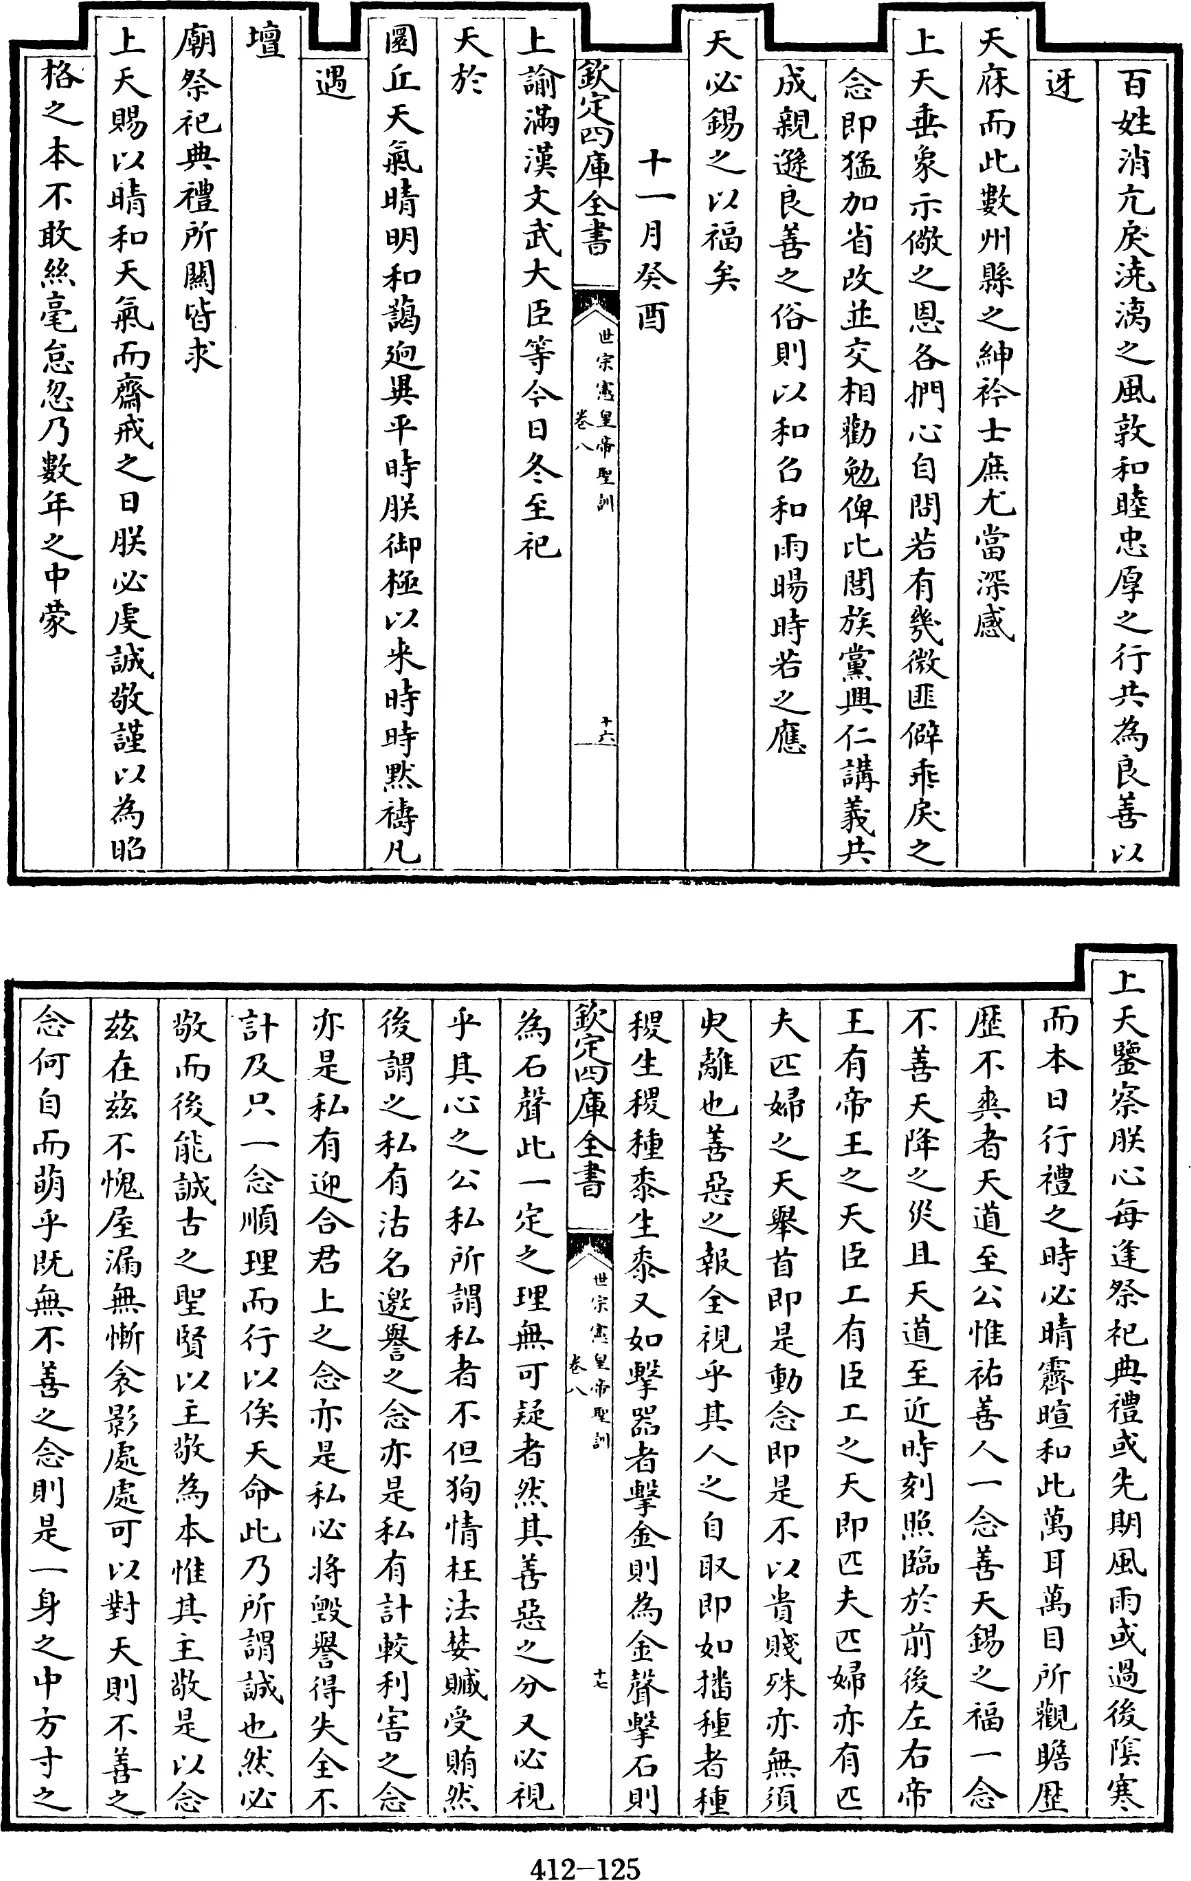 百姓消亢戾澆漓之風敦和睦忠厚之行共為良善以
迓
天庥而此數州縣之紳衿士庶尤當深感
上天垂象示儆之恩各捫心自問若有幾微匪僻乖戾之
念即猛加省改並交相勸勉俾比閭族黨興仁講義共
成親遜良善之俗則以和召和雨暘時若之應
天必錫之以福矣
十一月癸酉
欽定四庫全書
世宗憲皇帝聖訓
卷八
十六
上諭滿漢文武大臣等今日冬至祀
天於
圜丘天氣晴明和藹迥異平時朕御極以来時時默禱凡
遇
壇
廟祭祀典禮所關皆求
上天賜以晴和天氣而齋戒之日朕必虔誠敬謹以為昭
格之本不敢絲毫怠忽乃數年之中蒙
上天鑒察朕心每逢祭祀典禮或先期風雨或過後陰寒
而本日行禮之時必晴霽暄和此萬耳萬目所觀瞻歴
歴不爽者天道至公惟祐善人一念善天錫之福一念
不善天降之災且天道至近時刻照臨於前後左右帝
王有帝王之天臣工有臣工之天即匹夫匹婦亦有匹
夫匹婦之天舉首即是動念即是不以貴賤殊亦無須
臾離也善惡之報全視乎其人之自取即如播種者種
稷生稷種黍生黍又如擊器者擊金則為金聲擊石則
欽定四庫全書
世宗憲皇帝聖訓
卷八
十七
為石聲此一定之理無可疑者然其善惡之分又必視
乎其心之公私所謂私者不但狥情枉法婪贓受賄然
後謂之私有沽名邀譽之念亦是私有計較利害之念
亦是私有迎合君上之念亦是私必將毀譽得失全不
計及只一念順理而行以俟天命此乃所謂誠也然必
敬而後能誠古之聖賢以主敬為本惟其主敬是以念
茲在茲不愧屋漏無慚衾影處處可以對天則不善之
念何自而萌乎既無不善之念則是一身之中方寸之
412-125